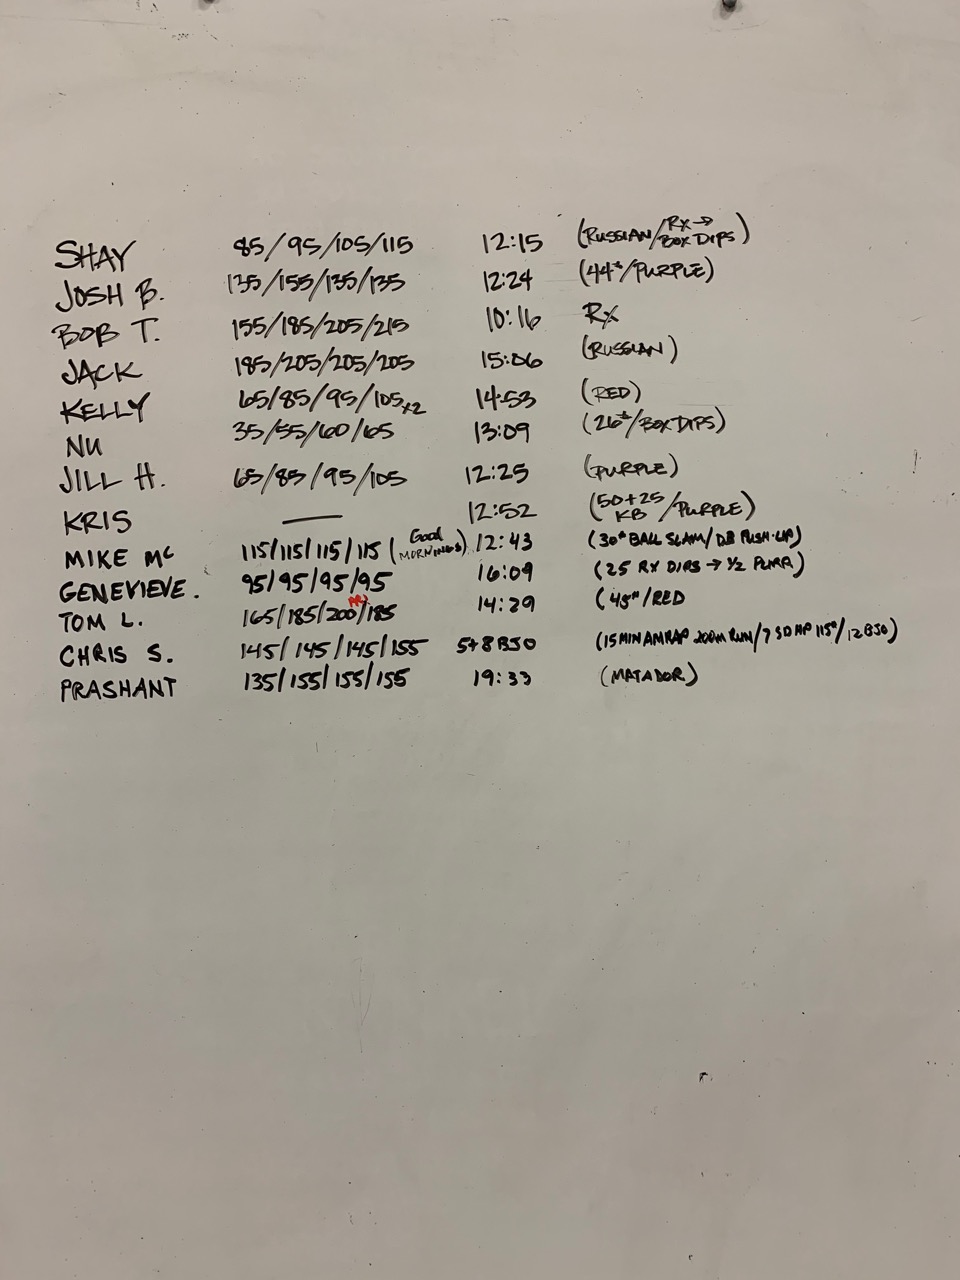 SHAY 85/95/105/115 12:15 (RUSSIAN/RX→BOX DIPS)
JOSH B. 135/155/135/135 12:24 (44#/PURPLE)
BOB T. 155/185/205/215 10:16 RX
JACK 185/205/205/205 15:06 (RUSSIAN)
KELLY 65/85/95/105x2 14:53 (RED)
NU 35/55/60/65 13:09 (26#/BOX DIPS)
JILL H. 65/85/95/105 12:25 (PURPLE)
KRIS — 12:52 (50+25 KB/PURPLE)
MIKE MC 115/115/115/115 (GOOD MORNINGS) 12:43 (30# BALL SLAM/DB PUSH-UP)
GENEVIEVE. 95/95/95/95 16:09 (25 RX DIPS→1/2 PURP)
TOM L. 165/185/200 PR/185 14:29 (45#/RED
CHRIS S. 145/145/145/155 5+8 BJO (15 MIN AMRAP 200M RUN/7 SDHP 115#/12 BJO)
PRASHANT 135/155/155/155 19:33 (MATADOR)